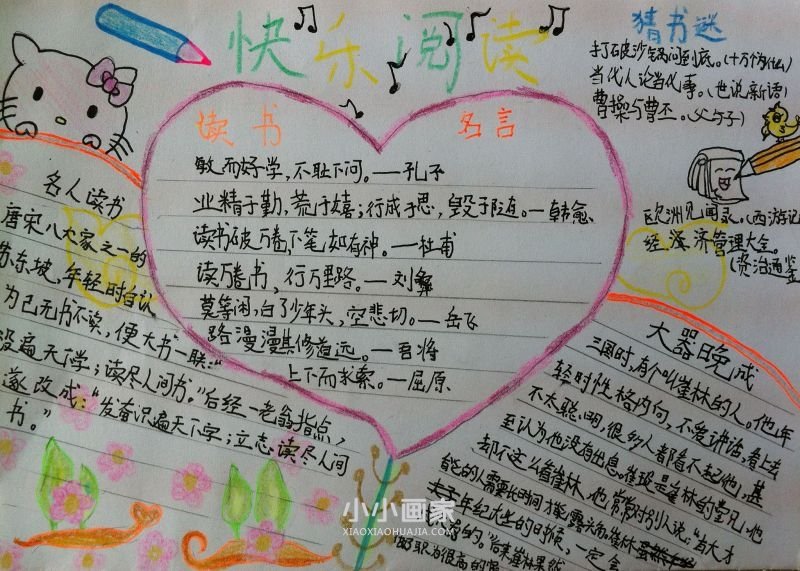 快乐阅读
猜书谜
打破沙锅问到底。(十万个为什么)
当代人论当代事。(世说新语)
曹操与曹丕。(父与子)
欧洲见闻录。(西游记
经济管理大全。
(资治通鉴
读书 名言
敏而好学,不耻下问。——孔子
业精于勤,荒于嬉;行成于思,毁于随。—韩愈
读书破万卷,下笔如有神。——杜甫
读万卷书,行万里路。——刘彝
莫等闲,白了少年头,空悲切。——岳飞
路漫漫其修道远。——吾将
上下而求索。——屈原
名人读书
唐宋八大家之一的
苏东坡,年轻时自认
为已无书不读,便大书一联:“
没遍天下学;读尽人间书。”后经一老翁指点,
遂改成:“发奋识遍天下字;立志读尽人间
书。”
大器晚成
三国时,有个叫崔林的人。他年
轻时性格内向,不爱讲话,看上去
不太聪明,很多人都看不起他,甚
至认为他没有出息。崔琰是崔林的堂兄,他
却不这么看崔林,他常常对别人说。“有大才
能的人需要长时间才能显露
年纪大些的日候,一定会
的。”后来崔林果然
小小画家
XIAOXIAOHUAJIA.COM